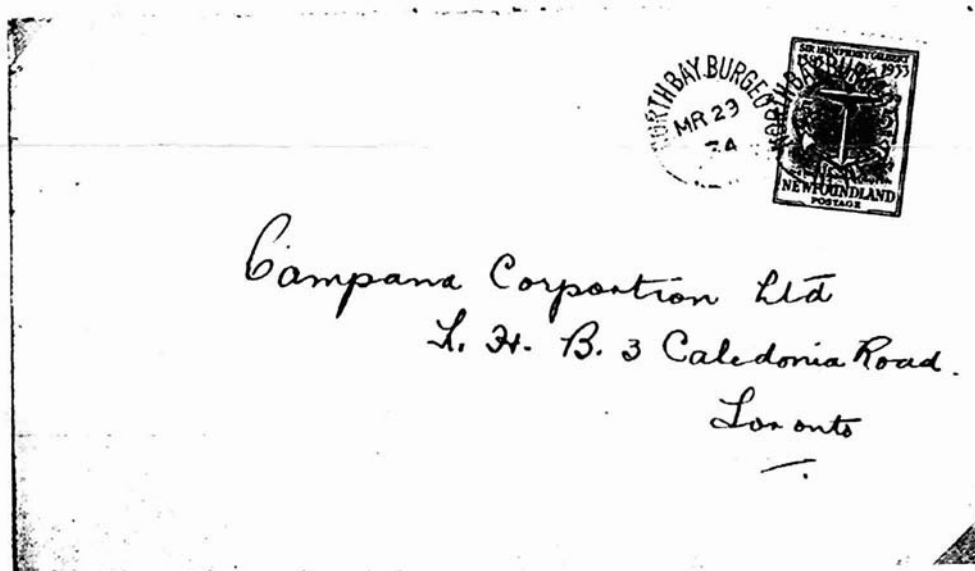 NORTH BAY. BURGEO
MR 23
NORTH BAY. BURGEO
SIR HUMPHREY GILBERT
1583 1933
NEWFOUNDLAND
POSTAGE
Campana Corportion Ltd
L. H. B. 3 Caledonia Road.
Toronto